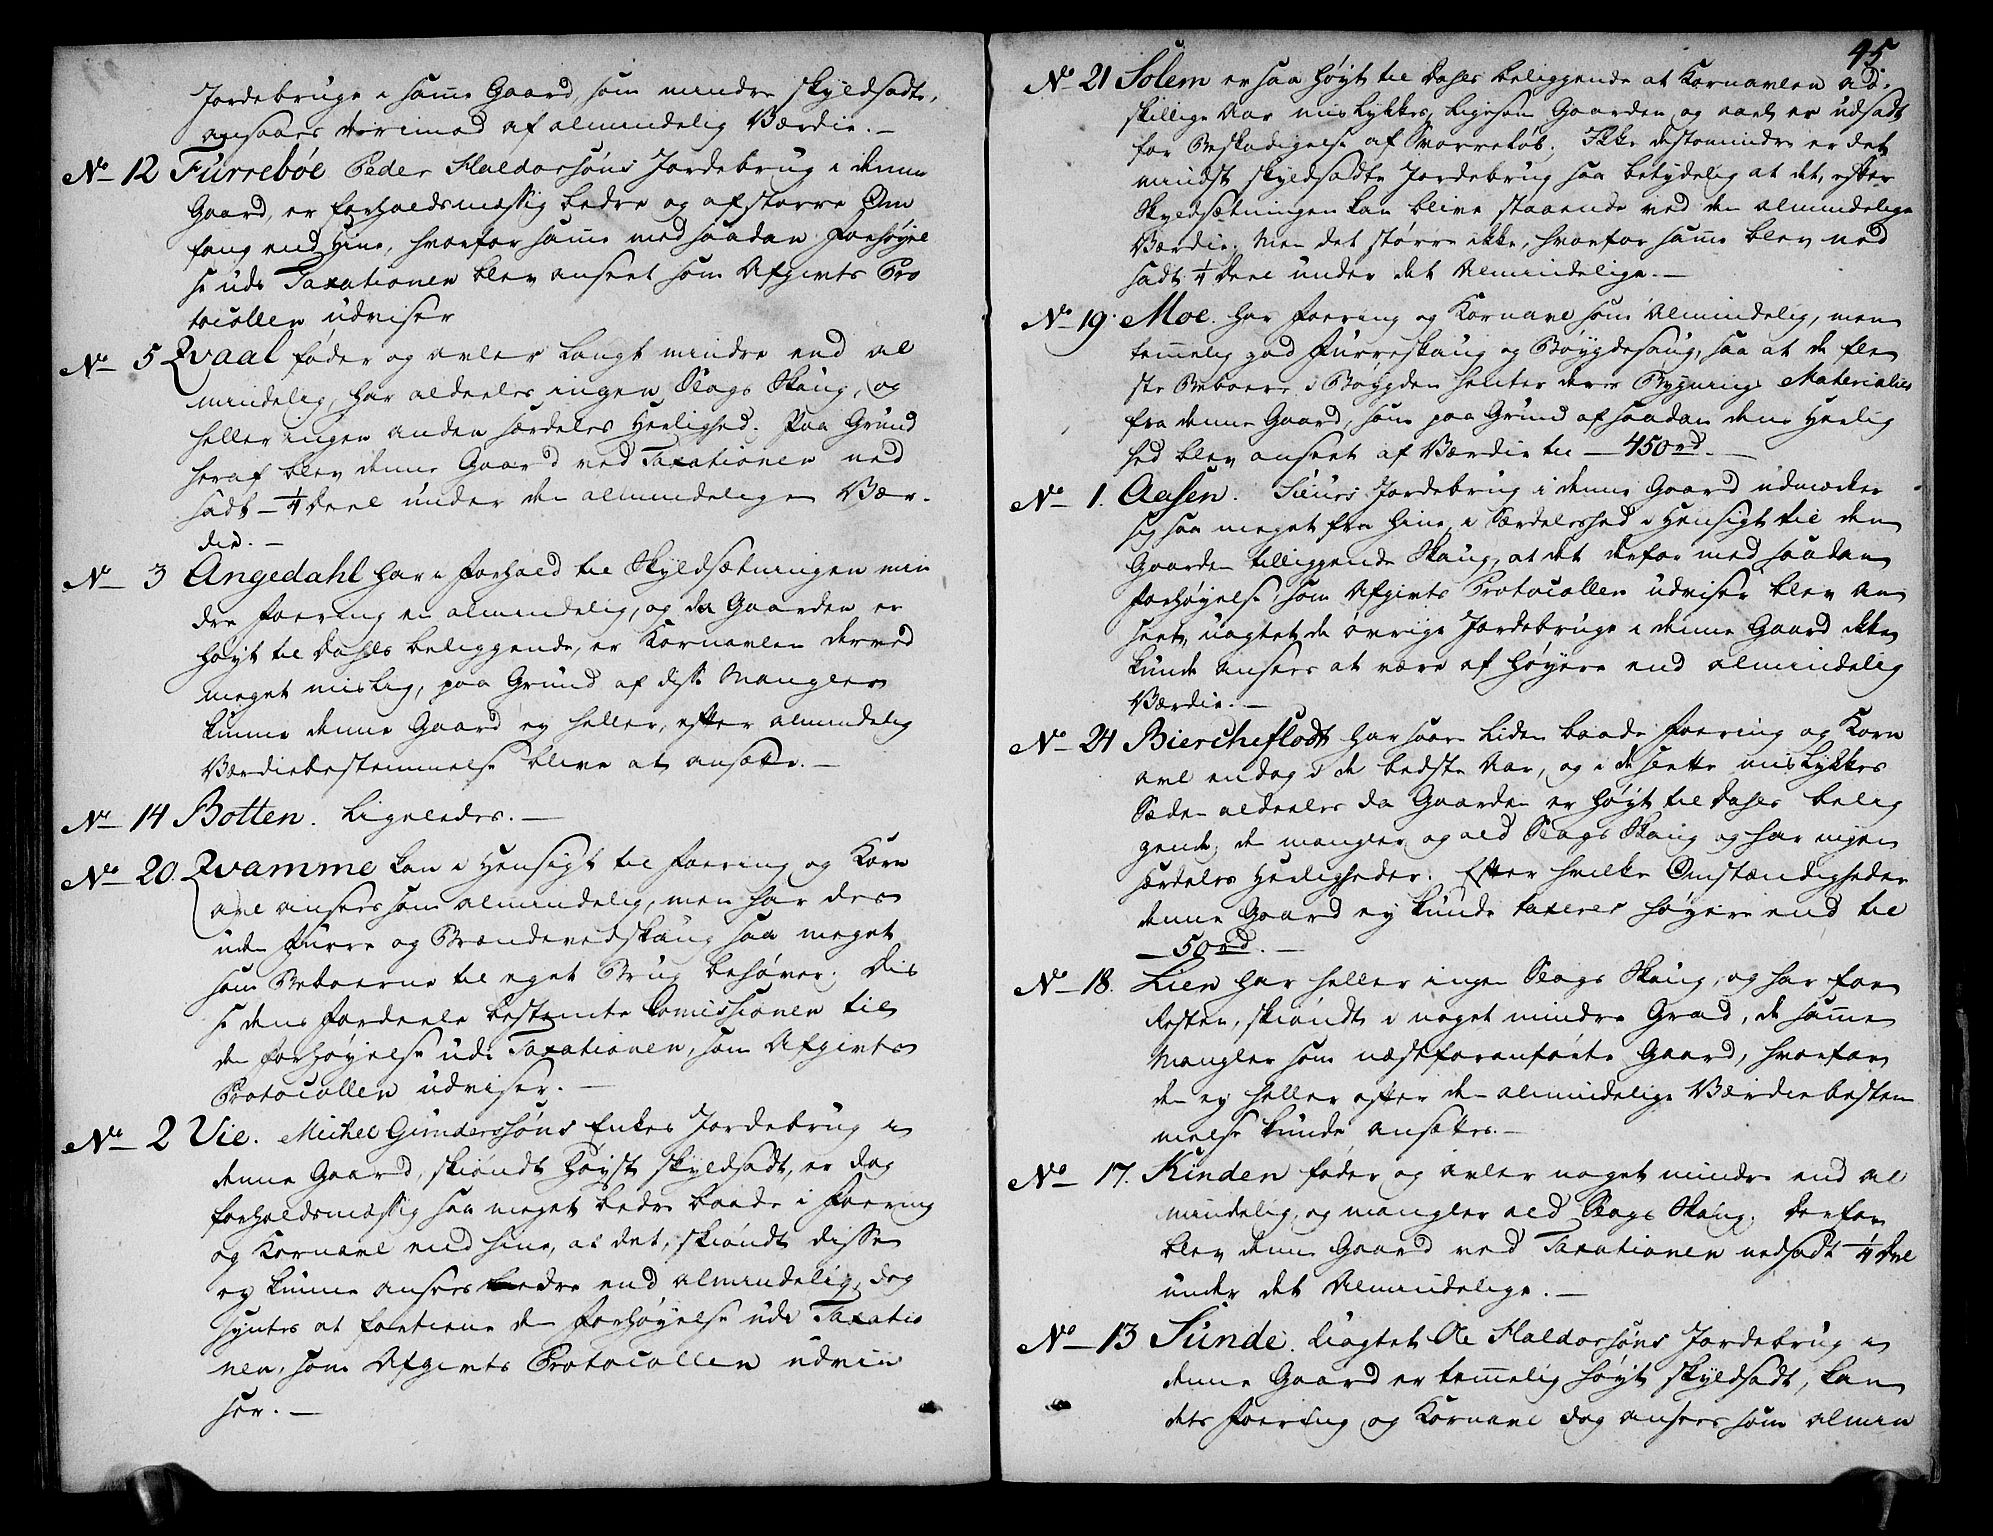 Jordebruge i samme Gaard, som mindre skyldsadte,
ansaaes derimod af almindelig Værdie. —
No 12 Furrebøe Peder Haldorsøns Jordebrug i denne
Gaard, er forholdsmæssig bedre og af større Om
fang end Hine, hvorfor samme med saadan Forhøyel
se udi Taxationen blev anseet som Afgivts Pro
tocollen udviser
No 5 Qvaal føder og avler langt mindre end al
mindelig, har aldeeles ingen Slags Skaug, og
heller ingen anden særdeles Herlighed. Paa Grund
heraf blev denne Gaard ved Taxationen ned
sadt — 1/4 Deel under den almindelige Vær-
die. —
No 3 Angedahl har i Forhold til Skyldsætningen min
dre Foering en almindelig, og da Gaarden er
høyt til Dahls beliggende, er Kornavlen derved
meget mislig, paa Grund af disse Mangler
kunne denne Gaard ey heller, efter almindelig
Værdiebestemmelse blive at ansætte. —
No 14 Botten. Ligeledes. —
No 20. Qvamme kan i Hensigt til Foering og Korn
avl ansees som almindelig, men har des
uden Furre og Brændevedskaug saa meget
som Beboerne til eget Brug behøver. Dis
se dens Fordeele bestemte Comissionen til
den Forhøyelse udi Taxationen, som Afgivts
Protocollen udviser. —
No 2 Vie. Michel Gunderssøns Enkes Jordebrug i
denne Gaard, skiøndt høyst skyldsadt, er dog
forholdsmæssig saa meget bedre baade i Foering
og Kornavl end hine, at det, skiøndt disse
ey kunne ansees bedre end almindelig, dog
syntes at fortiene den Forhøyelse udi Taxatio
nen, som Afgivts Protocollen udvii
ser. —
45.
No 21 Solem er saa høyt til Dahls beliggende at Kornavlen ad-
skillige Aar mislykkes, ligesom Gaarden og aarl. er udsadt
for Beskadigelse af Skarreløb. Ikke destomindre er det
mindst skyldsadte Jordebrug saa betydelig at det, efter
Skyldsætningen kan blive staaende ved den almindelige
Værdie. Men det større ikke, hvorfor samme blev ned
sadt 1/4 Deel under det Almindelige. —
No 19. Moe. har Foering og Kornavl som Almindelig, men
temmelig god Furreskaug og Bøygdesaug, saa at de fle
ste Beboere i Bøygden henter deres Bygnings Materialier
fra denne Gaard, som paa Grund af saadan dens Herlig
hed blev anseet af Værdie til — 450rd. —
No 1. Aasen. Siurs Jordebrug i denne Gaard udmærker
sig saa meget fra hine, i Særdeleshed i Hensigt til den
Gaarden tilliggende Skaug, at det derfor med saadan
Forhøyelse, som Afgivts Protocollen udviser blev an
seet, uagtet de øvrige Jordebruge i denne Gaard ikke
kunde ansees at være af høyere end almindelig
Værdie. —
No 24 Biercheflodt har saare liden baade Foering og Korn
avl endog i de bedste Aar, og i de slette mislykkes
Sæden aldeeles da Gaarden er høyt til Dahls belig
gende, den mangler og ald Slags Skaug og har ingen
særdeles Herligheder. Efter hvilke Omstændigheder
denne Gaard ey kunde taxeres høyere end til
— 50rd. —
No 18. Lien har heller ingen Slags Skaug, og har for
Resten, skiøndt i noget mindre Grad, de samme
Mangler som næstforanførte Gaard, hvorfor
den ey heller efter den almindelige Værdiebestem
melse kunde ansættes. —
No 17. Kinden føder og avler noget mindre end al
mindelig, og mangler ald Slags Skaug. Derfor
blev denne Gaard ved Taxationen nedsadt 1/4 Deel
under det Almindelige. —
No 13 Sunde. Uagtet Ole Haldorsøns Jordebrug i
denne Gaard er temmelig høyt skyldsadt, kan
dets Foering og Kornavl dog ansees som almin